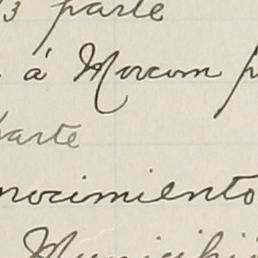 3 parte
á Morcom p
parte
nocimiento
Municipi